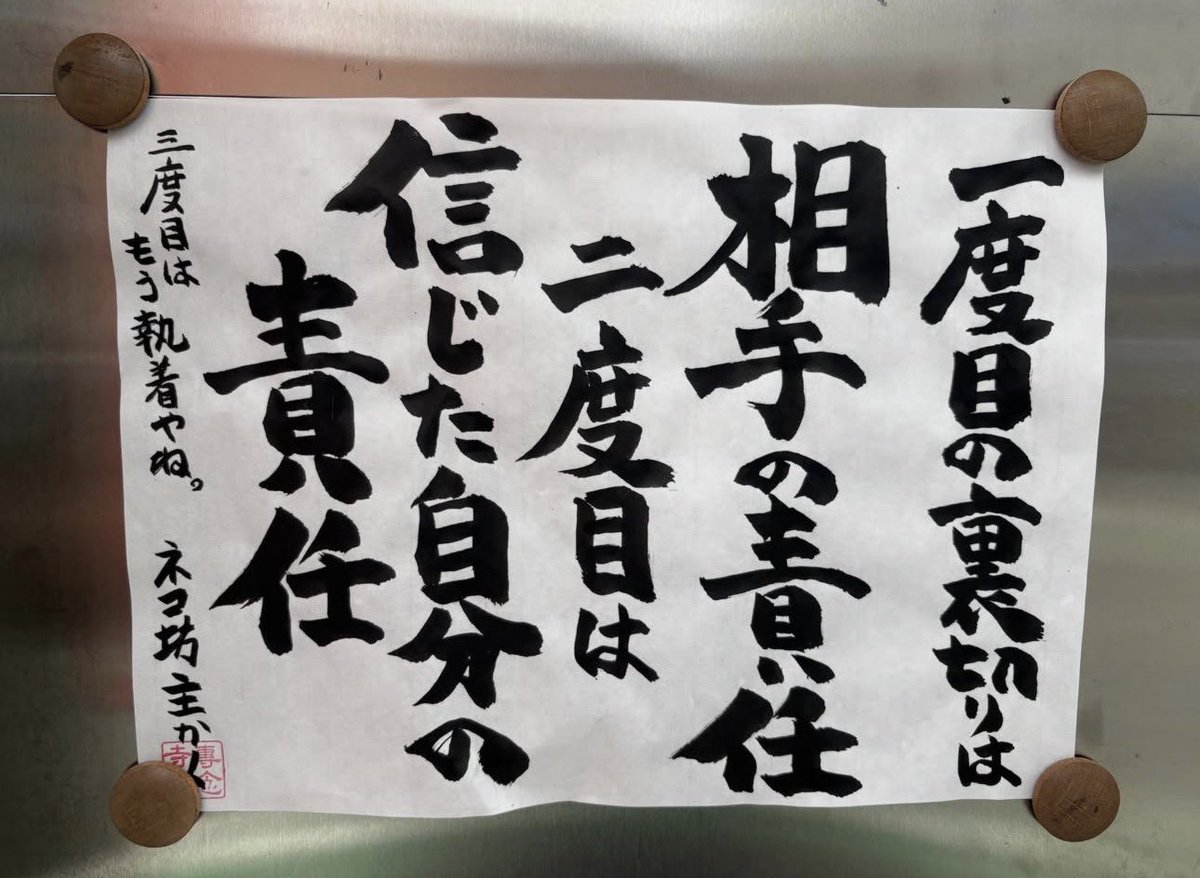 一度目の裏切りは
相手の責任
二度目は
信じた自分の
責任
三度目は
もう執着やね。
ネコ坊主かく
專念
寺